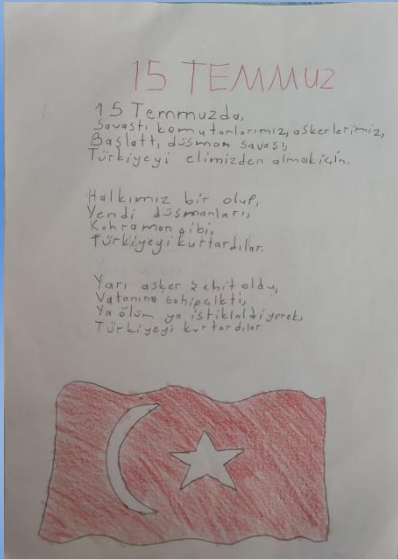 15 TEMMUZ
15 Temmuzda,
Savaştı komutanlarımız, askerlerimiz,
Başlattı, düşman savaşı,
Türkiyeyi elimizden almak için.
Halkımız bir olup,
Yendi düşmanları,
Kahraman gibi,
Türkiyeyi kurtardılar.
Yarı asker şehit oldu,
Vatanına sahip çıktı,
Ya ölüm ya istiklal diyerek,
Türkiyeyi kurtardılar